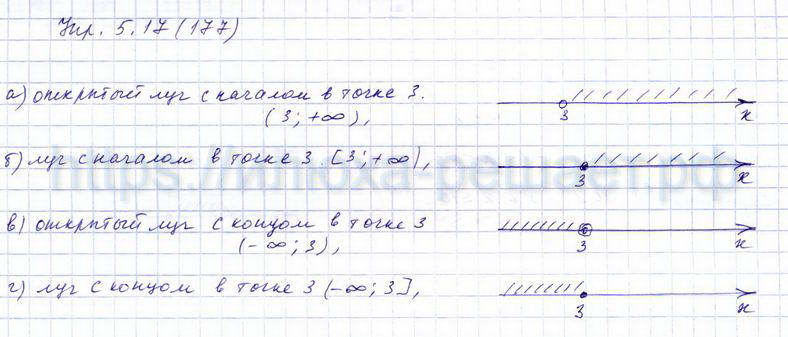 Упр. 5.17 (177)
а) открытый луч с началом в точке 3.
(3; +∞),
3
x
б) луч с началом в точке 3. [3; +∞),
3
x
в) открытый луч с концом в точке 3
(-∞; 3),
3
x
г) луч с концом в точке 3 (-∞; 3],
3
x